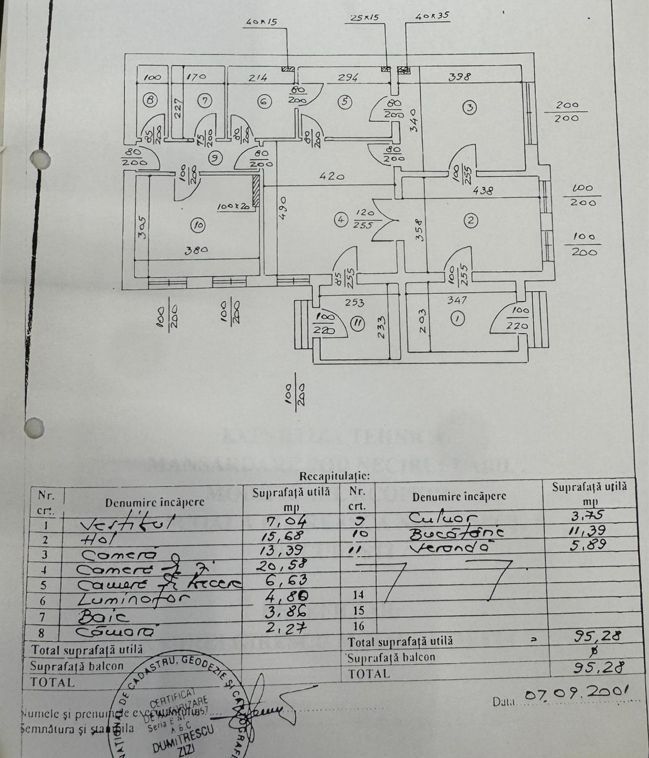 40x15
25x15
40x35
100
170
214
294
398
8
227
7
6
80/200
5
80/200
340
3
200/200
85/200
75/200
80/200
80/200
9
80/200
80/200
100/200
420
100/255
438
100/200
305
100x20
490
4
120/255
358
2
10
380
100/200
85/255
100/255
100/200
100/200
253
347
100/220
11
233
203
1
100/220
100/200
Recapitulație:
Nr. crt.
Denumire încăpere
Suprafață utilă mp
Nr. crt.
Denumire încăpere
Suprafață utilă mp
1 Vestibul 7,04 9 Culuor 3,75
2 Hol 15,68 10 Bucătărie 11,39
3 Cameră 13,39 11 Verandă 5,89
4 Camera de zi 20,58
5 Camera de trecere 6,63
6 Luminator 4,80 14
7 Baie 3,86 15
8 Cămară 2,27 16
Total suprafață utilă Total suprafață utilă = 95,28
Suprafață balcon Suprafață balcon
TOTAL TOTAL 95,28
Numele și prenumele executantului
Semnătura și ștampila
Data 07.09.2001
NAȚIONAL DE CADASTRU, GEODEZIE ȘI CARTOGRAFIE
CERTIFICAT
DE AUTORIZARE
DUMITRESCU
ZIZI